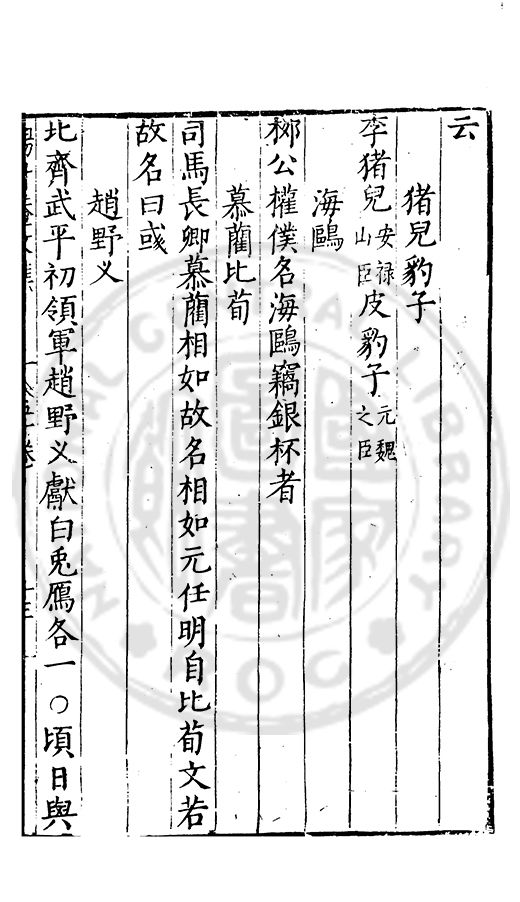 云
猪兒豹子
李猪兒安祿山臣皮豹子元魏之臣
海鷗
柳公權僕名海鷗竊銀杯者
慕藺比荀
司馬長卿慕藺相如故名相如元任明自比荀文若
故名曰彧
趙野义
北齊武平初領軍趙野义獻白兎鴈各一○頃日與